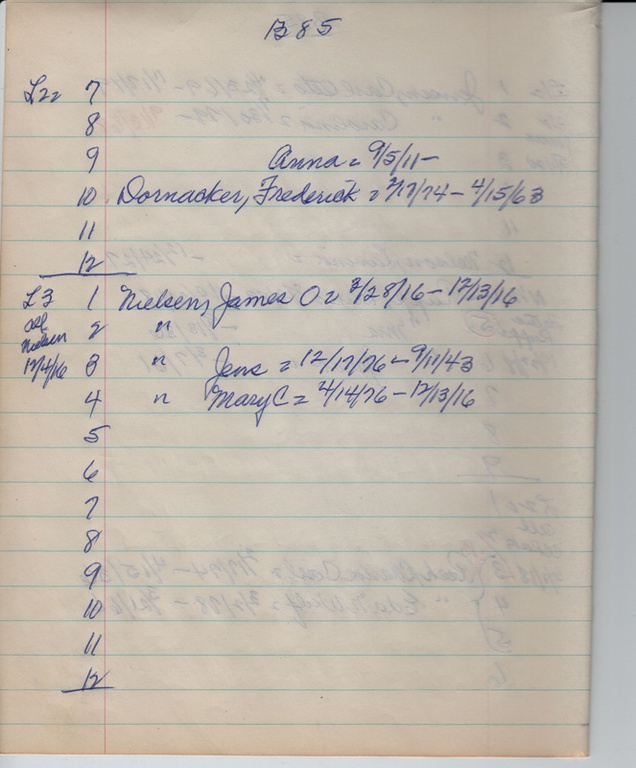 B 85
L2 7
8
9 Anna = 9/5/11 -
10 Dornacker, Frederick = 2/17/74 - 4/15/63
11
12
L3 1 Nielsen, James O = 3/28/16 - 12/13/16
all 2 "
Nielsen
12/4/16 3 " Jens = 12/17/76 - 9/11/43
4 " Mary C = 4/14/76 - 12/13/16
5
6
7
8
9
10
11
12